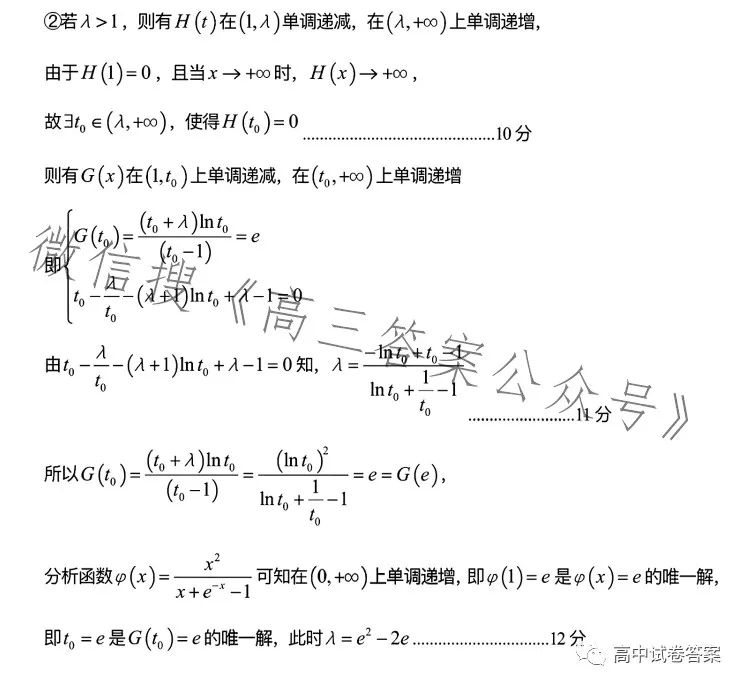 ②若λ>1，则有H(t)在(1,λ)单调递减，在(λ,+∞)上单调递增，
由于H(1)=0，且当x→+∞时，H(x)→+∞，
故∃t₀∈(λ,+∞)，使得H(t₀)=0 ............................................10分
则有G(x)在(1,t₀)上单调递减，在(t₀,+∞)上单调递增
即{G(t₀)=(t₀+λ)ln t₀/(t₀-1)=e
t₀-λ/t₀-(λ+1)ln t₀+λ-1=0
由t₀-λ/t₀-(λ+1)ln t₀+λ-1=0知，λ=(-ln t₀+t₀-1)/(ln t₀+1/t₀-1) ........................11分
所以G(t₀)=(t₀+λ)ln t₀/(t₀-1)=(ln t₀)²/(ln t₀+1/t₀-1)=e=G(e)，
分析函数φ(x)=x²/(x+e⁻ˣ-1)可知在(0,+∞)上单调递增，即φ(1)=e是φ(x)=e的唯一解，
即t₀=e是G(t₀)=e的唯一解，此时λ=e²-2e...............................12分
微信搜《高三答案公众号》
高中试卷答案